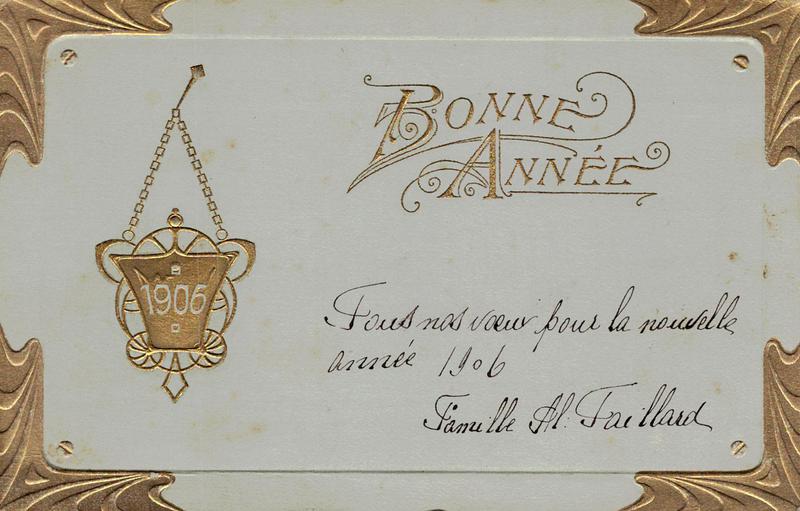 BONNE
ANNÉE
1906
Tous nos vœux pour la nouvelle
année 1906
Famille Al. Faillard